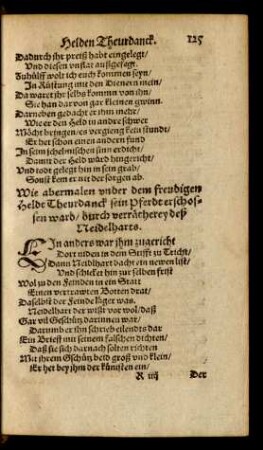 Helden Theurdanck. 125
Dadurch ihr preiß habt eingelegt/
Vnd diesen vnflat außgefegt.
Zuhülff wolt ich euch kommen seyn/
In Rüstung mit den Dienern mein/
Da waret ihr selbs kommen von ihn/
Sie han darvon gar kleinen gewinn.
Darneben gedacht er ihm mehr/
Wie er den Held in andre schwer
Möcht bringen/es vergieng kein stundt/
Er het schon einen andern fund
In seim schelmischen sinn erdicht/
Damit der Held würd hingericht/
Vnd todt gelegt hin in sein grab/
Sonst kem er nit der sorgen ab.
Wie abermalen vnder dem freudigen
Heldt Theurdanck sein Pferdt erschos-
sen ward/ durch verrätherey deß
Neidelharts.
EIn anders war ihm zugericht
Dort niden in dem Stifft zu Tricht/
Dann Neidlhart dacht ein newen list/
Vnd schicket hin zur selben frist
Wol zu den Feinden in ein Statt
Einen vertrawten Botten drat/
Daselbst der Feinde läger was.
Neidelhart der wißt vor wol/daß
Gar vil Geschütz darinnen war/
Darumb er ihn schrieb eilendts dar
Ein Brieff mit seinem falschen dichten/
Daß sie sich darnach solten richten
Mit ihrem Gschütz beid groß vnd klein/
Er het bey ihm der künsten ein/
R iiij Der